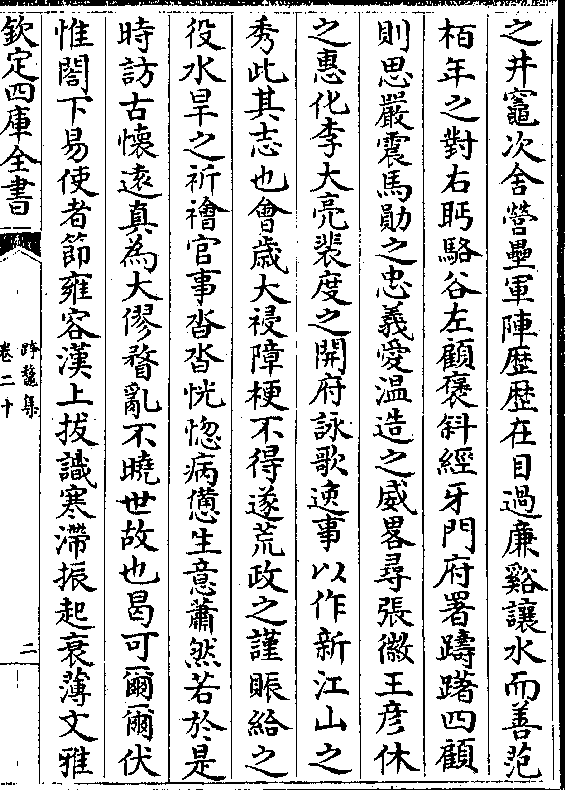 之井竈次舍營壘軍陣歴歴在目過廉谿讓水而善范
栢年之對右眄駱谷左顧褒斜經牙門府署躊躇四顧
則思嚴震馬勛之忠義愛温造之威畧尋張徽王彦休
之惠化李大亮裴度之開府詠歌逺事以作新江山之
秀此其志也會歳大祲障梗不得遂荒政之謹賑給之
役水旱之祈禬官事沓沓恍惚病憊生意蕭然若於是
時訪古懐逺真為大僇瞀亂不曉世故也曷可爾爾伏
惟閤下易使者節雍容漢上拔識寒滯振起衰薄文雅
欽定四庫全書
跨鼇集
卷二十
二